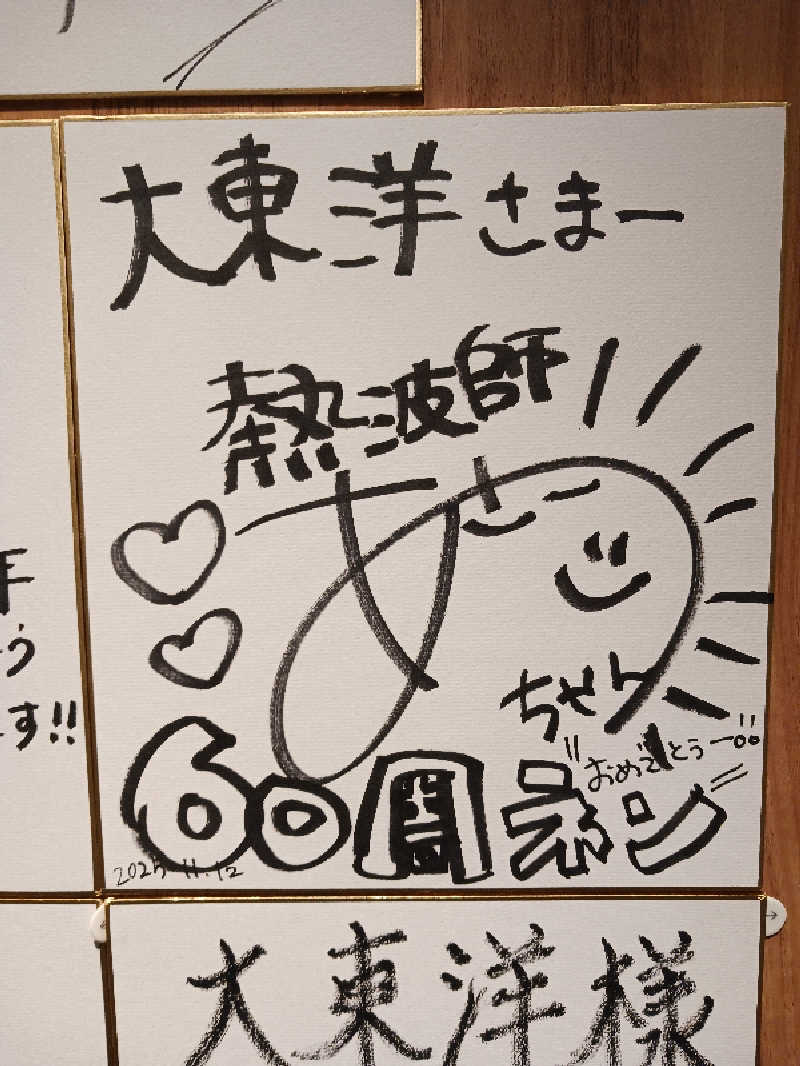 大東洋さまー
熱波師
あさー
ちゃん
おめでとうー!!
60周年
2025.11.12
す!!
大東洋様